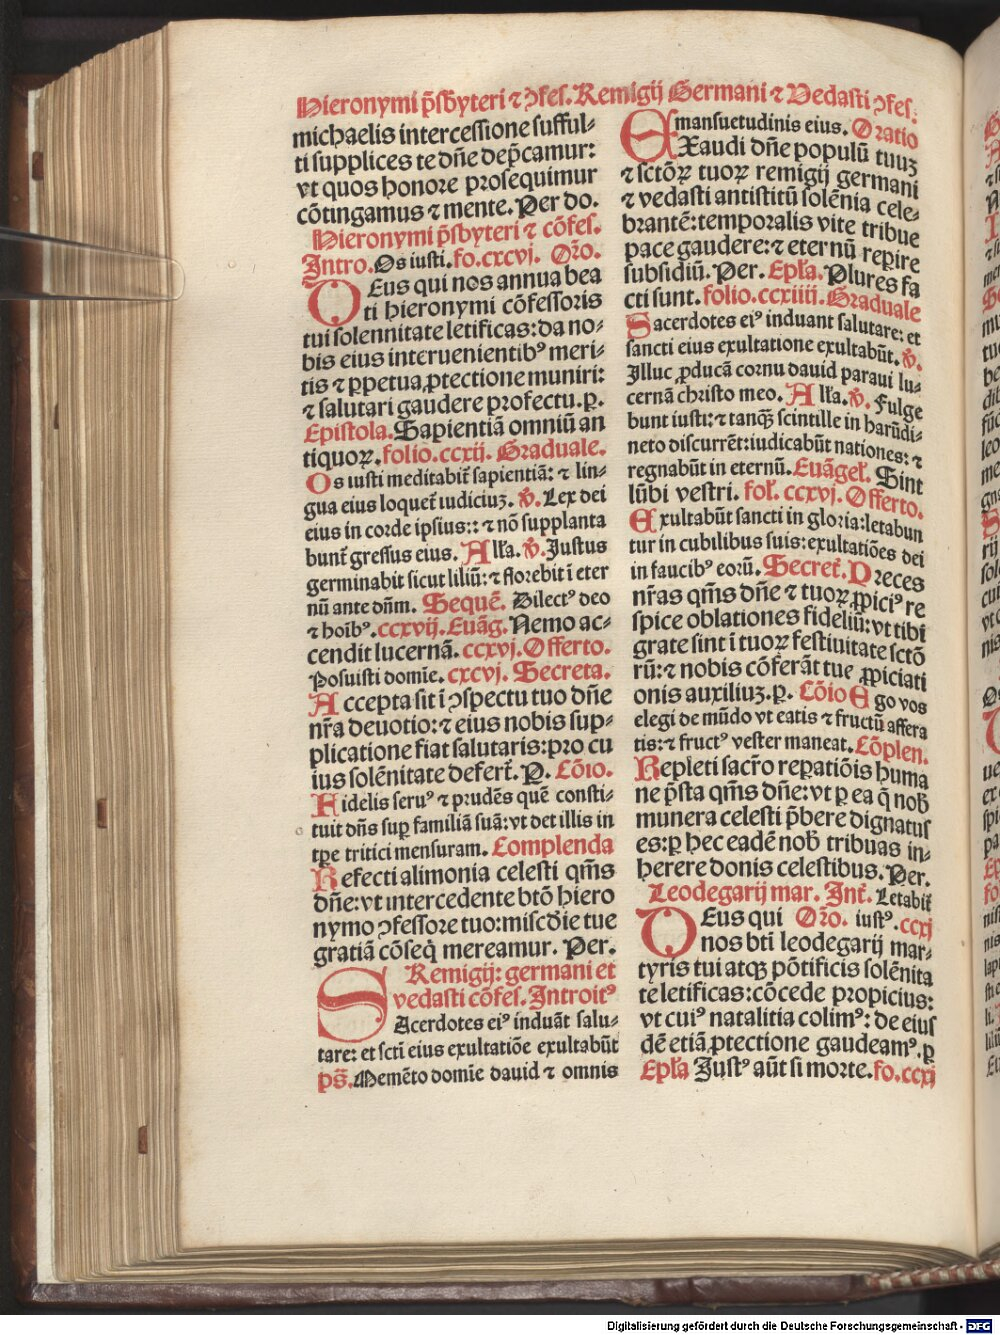 Hieronymi p̃sbyteri ⁊ ꝯfes. Remigij Germani ⁊ Vedasti ꝯfes.
michaelis intercessione sufful-
ti supplices te dñe dep̃camur:
vt quos honore prosequimur
cõtingamus ⁊ mente. Per do.
Hieronymi p̃sbyteri ⁊ cõfes.
Intro. Os iusti. fo. cxcvj. Oro.
DEus qui nos annua bea
ti hieronymi cõfessoris
tui solennitate letificas: da no-
bis eius interuenientibꝰ meri-
tis ⁊ ꝑpetua ꝓtectione muniri:
⁊ salutari gaudere profectu. p.
Epistola. Sapientiã omniũ an
tiquoꝝ. folio. ccxij. Graduale.
Os iusti meditabit̃ sapientiã: ⁊ lin-
gua eius loquet̃ iudiciuꝫ. ꝟ. Lex dei
eius in corde ipsius:: ⁊ nõ supplanta
bunt̃ gressus eius. Alla. ꝟ. Justus
germinabit sicut liliũ: ⁊ florebit ĩ eter
nũ ante dñm. Sequẽ. Dilectꝰ deo
⁊ hoĩbꝰ. ccxvij. Euãg. Nemo ac-
cendit lucernã. ccxvj. Offerto.
Posuisti domĩe. cxcvj. Secreta.
Accepta sit ĩ ꝯspectu tuo dñe
nr̃a deuotio: ⁊ eius nobis sup-
plicatione fiat salutaris: pro cu
ius solẽnitate defert̃. P. Cõio.
Fidelis seruꝰ ⁊ prudẽs quẽ consti-
tuit dñs sup familiã suã: vt det illis in
tꝑe tritici mensuram. Complenda
Refecti alimonia celesti qm̃s
dñe: vt intercedente btõ hiero
nymo ꝯfessore tuo: miscd̃ie tue
gratiã cõseq̃ mereamur. Per.
Remigij: germani et
vedasti cõfes. Introitꝰ
SAcerdotes eiꝰ induãt salu-
tare: et scti eius exultatiõe exultabũt
ps̃. Memẽto domĩe dauid ⁊ omnis
mansuetudinis eius. Oratio
EXaudi dñe populũ tuuꝫ
⁊ sctõꝝ tuoꝝ remigij germani
⁊ vedasti antistitũ solẽnia cele-
brantẽ: temporalis vite tribue
pace gaudere: ⁊ eternũ reꝑire
subsidiũ. Per. Epła. Plures fa
cti sunt. folio. ccxiiij. Graduale
Sacerdotes eiꝰ induant salutare: et
sancti eius exultatione exultabũt. ꝟ.
Illuc ꝓducã cornu dauid paraui lu-
cernã christo meo. Alla. ꝟ. Fulge
bunt iusti: ⁊ tanqꝫ scintille in harũdi-
neto discurrẽt: iudicabũt nationes: ⁊
regnabũt in eternũ. Euãgel̃. Sint
lũbi vestri. fol̃. ccxvj. Offerto.
Exultabũt sancti in gloria: letabun
tur in cubilibus suis: exultatiões dei
in faucibꝰ eorũ. Secret̃. Preces
nr̃as qm̃s dñe ⁊ tuoꝝ ꝓpiciꝰ re
spice oblationes fideliũ: vt tibi
grate sint ĩ tuoꝝ festiuitate sctõ
rũ: ⁊ nobis cõferãt tue ꝓpiciati
onis auxiliuꝫ. p. Cõio Ego vos
elegi de mũdo vt eatis ⁊ fructũ affera
tis: ⁊ fructꝰ vester maneat. Cõplen.
Repleti sacr̃o reꝑatiõis huma
ne p̃sta qm̃s dñe: vt ꝑ ea q̃ nob̃
munera celesti p̃bere dignatus
es: ꝑ hec eadẽ nob̃ tribuas in-
herere donis celestibus. Per.
Leodegarij mar. Int̃. Letabit̃
DEus qui Oro. iustꝰ. ccxj
nos bt̃i leodegarij mar-
tyris tui atqꝫ põtificis solẽnita
te letificas: cõcede propicius:
vt cuiꝰ natalitia colimꝰ: de eius
dẽ etiã ꝓtectione gaudeamꝰ. ꝑ
Epła Justꝰ aũt si morte. fo. ccxj
Digitalisierung gefördert durch die Deutsche Forschungsgemeinschaft - DFG